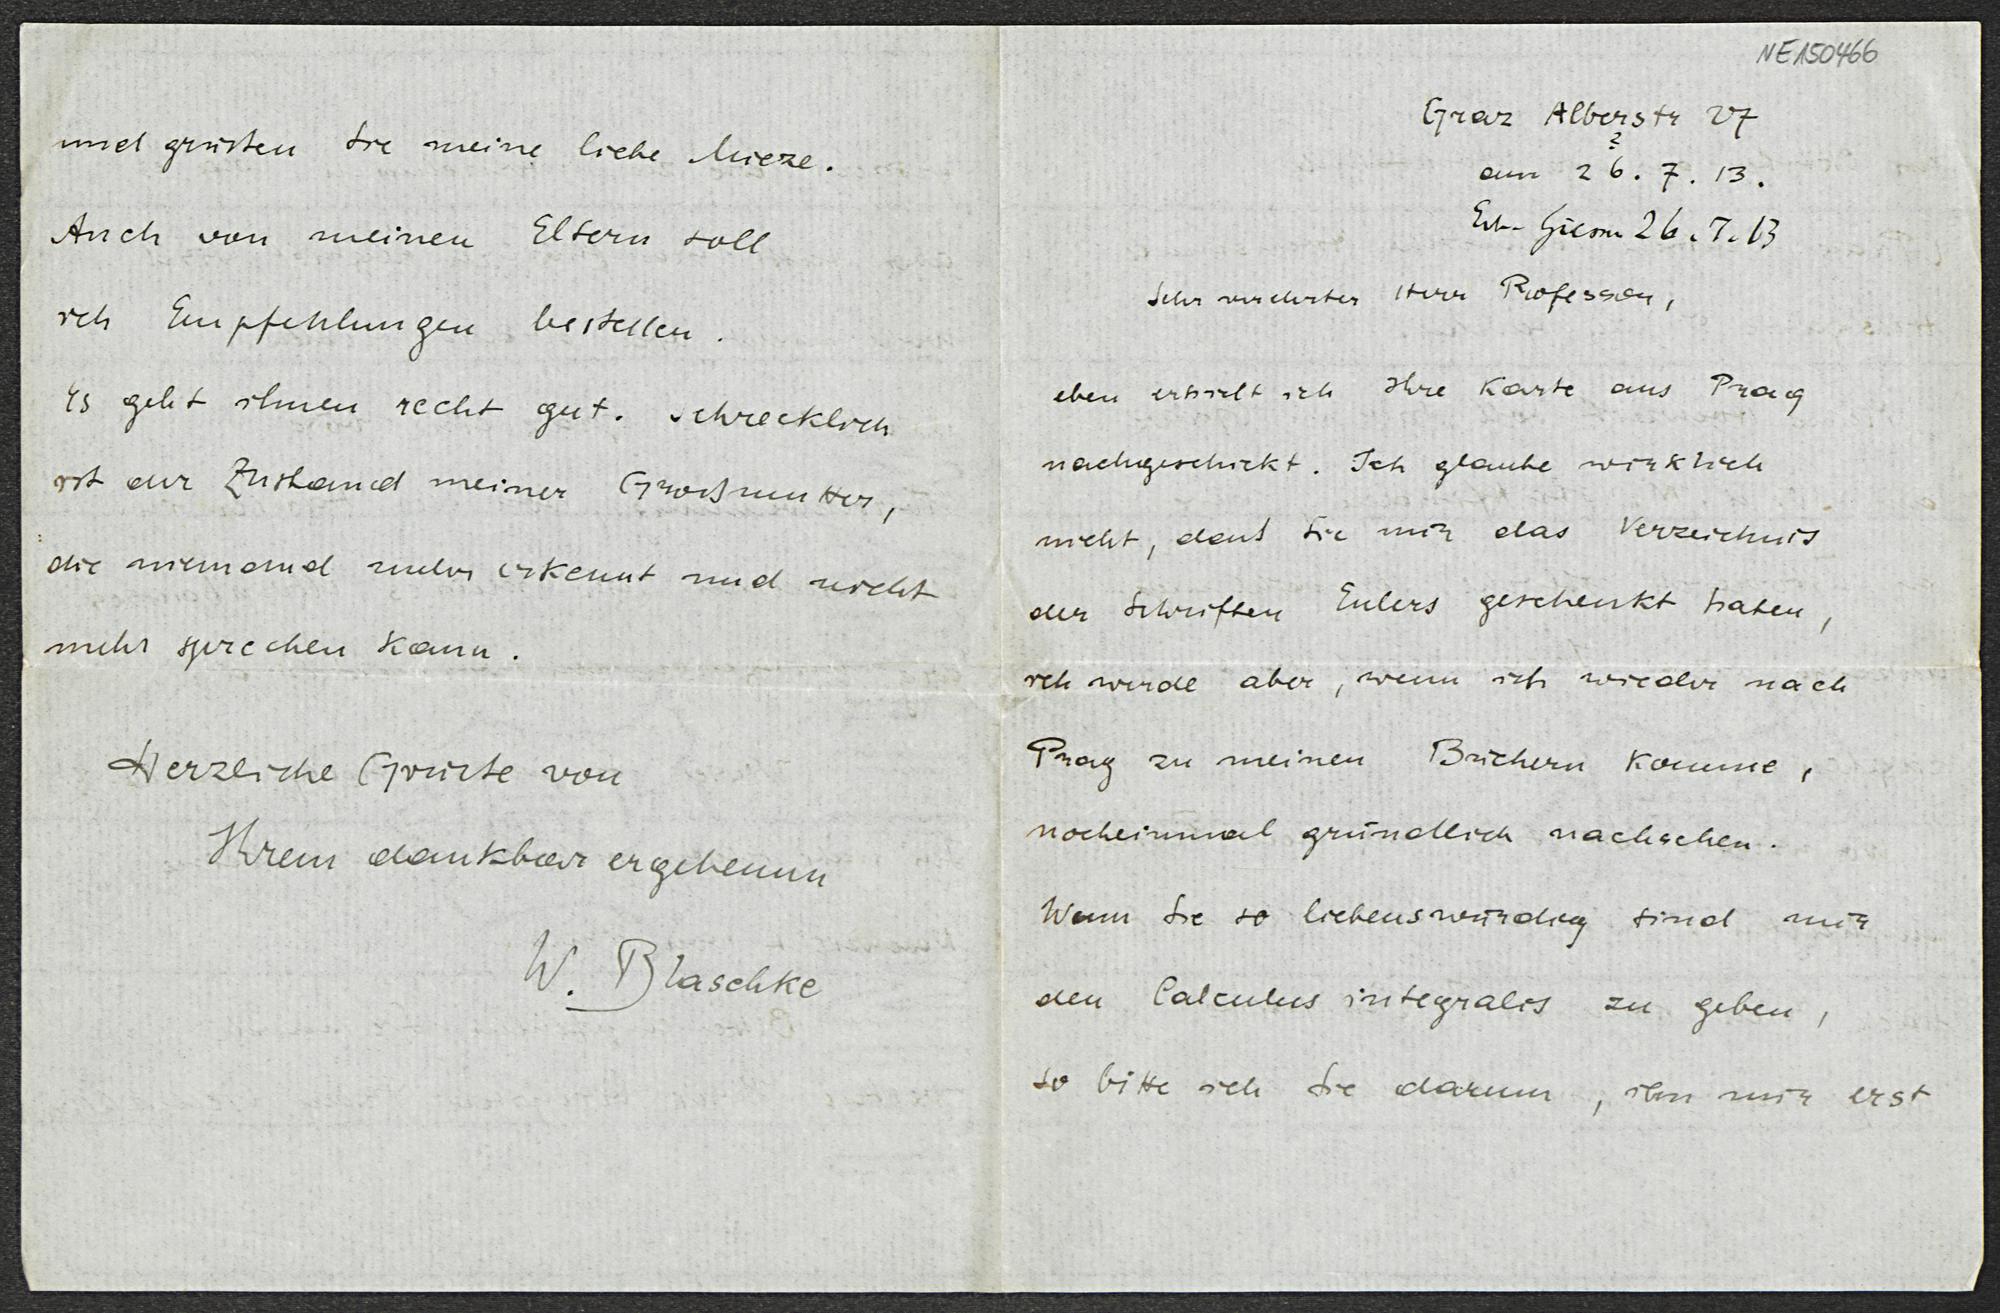 NE150466
Graz Alberstr 27
am 26. 7. 13.
2
26. 7. 13
Sehr verehrter Herr Professor,
eben erhielt ich Ihre Karte aus Prag
nachgeschickt. Ich glaube wirklich
nicht, daß Sie mir das Verzeichnis
der Schriften Eulers geschenkt haben,
ich werde aber, wenn ich wieder nach
Prag zu meinen Büchern komme,
nocheinmal gründlich nachsehen.
Wenn Sie so liebenswürdig sind mir
den Calculus integralis zu geben,
so bitte ich Sie darum, ihn mir erst
und grüßen Sie meine liebe Mieze.
Auch von meinen Eltern soll
ich Empfehlungen bestellen.
Es geht ihnen recht gut. Schrecklich
ist der Zustand meiner Großmutter,
die niemand mehr erkennt und nicht
mehr sprechen kann.
Herzliche Grüße von
Ihrem dankbar ergebenen
W. Blaschke